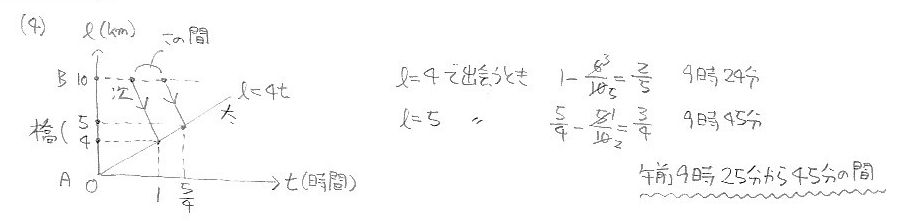 (4)
l(km)
この間
B 10
次
l=4t
太
橋( 5
4
A 0
1 5/4
t(時間)
l=4で出会うとき 1-6/10=2/5 9時24分
l=5 〃 5/4-5/10=3/4 9時45分
午前9時25分から45分の間